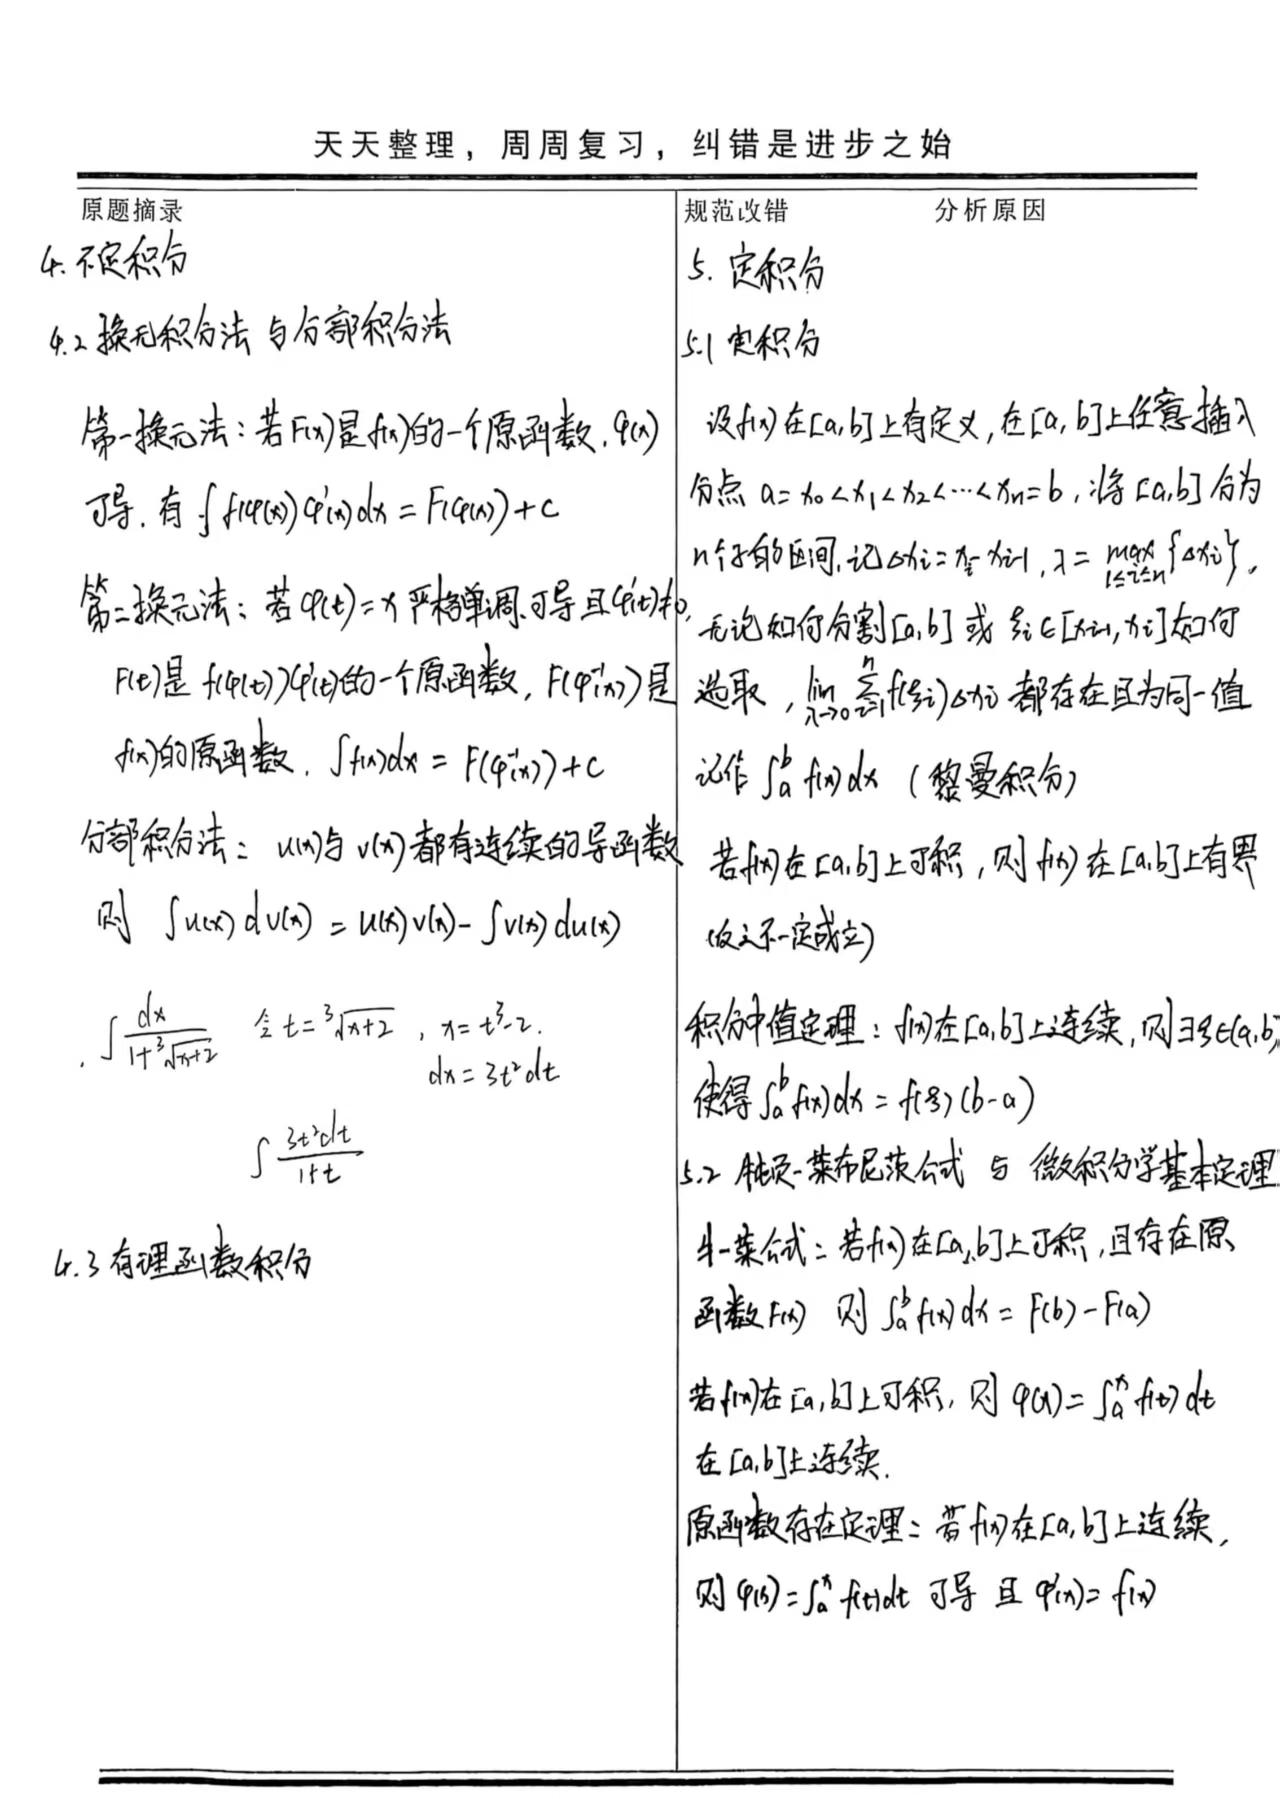 天天整理，周周复习，纠错是进步之始
原题摘录
4. 不定积分
4.2 换元积分法 与分部积分法
第一换元法：若F(x)是f(x)的一个原函数，φ(x)
可导，有 ∫f(φ(x))φ'(x)dx = F(φ(x))+C
第二换元法：若 φ(t)=x 严格单调、可导且φ'(t)≠0，
F(t)是 f(φ(t))φ'(t)的一个原函数，F(φ⁻¹(x))是
f(x)的原函数．∫f(x)dx = F(φ⁻¹(x))+C
分部积分法：u(x)与 v(x)都有连续的导函数
则 ∫u(x)dv(x) = u(x)v(x)-∫v(x)du(x)
∫dx/(1+³√(x+2)) 令 t=³√(x+2)，x=t³-2.
dx=3t²dt
∫3t²dt/(1+t)
4.3 有理函数积分
规范改错 分析原因
5. 定积分
5.1 定积分
设f(x)在[a,b]上有定义,在[a,b]上任意插入
分点 a=x₀<x₁<x₂<…<xₙ=b，将[a,b]分为
n个子的区间，记Δxi=xi-xi-1，λ=max{Δxi}，
1≤i≤n
无论如何分割[a,b] 或 ξi∈[xi-1,xi]如何
选取，lim λ→0 Σ i=1 n f(ξi)Δxi 都存在且为同一值
记作 ∫ₐᵇ f(x)dx （黎曼积分）
若f(x)在[a,b]上可积，则 f(x)在[a,b]上有界
(反之不一定成立)
积分中值定理：f(x)在[a,b]上连续，则∃ξ∈(a,b)
使得∫ₐᵇf(x)dx=f(ξ)(b-a)
5.2 牛顿-莱布尼茨公式 与 微积分学基本定理
牛-莱公式：若f(x)在[a,b]上可积，且存在原
函数F(x) 则 ∫ₐᵇf(x)dx=F(b)-F(a)
若f(x)在[a,b]上可积，则 φ(x)=∫ₐˣf(t)dt
在[a,b]上连续.
原函数存在定理：若f(x)在[a,b]上连续，
则 φ(x)=∫ₐˣf(t)dt 可导 且 φ'(x)=f(x)